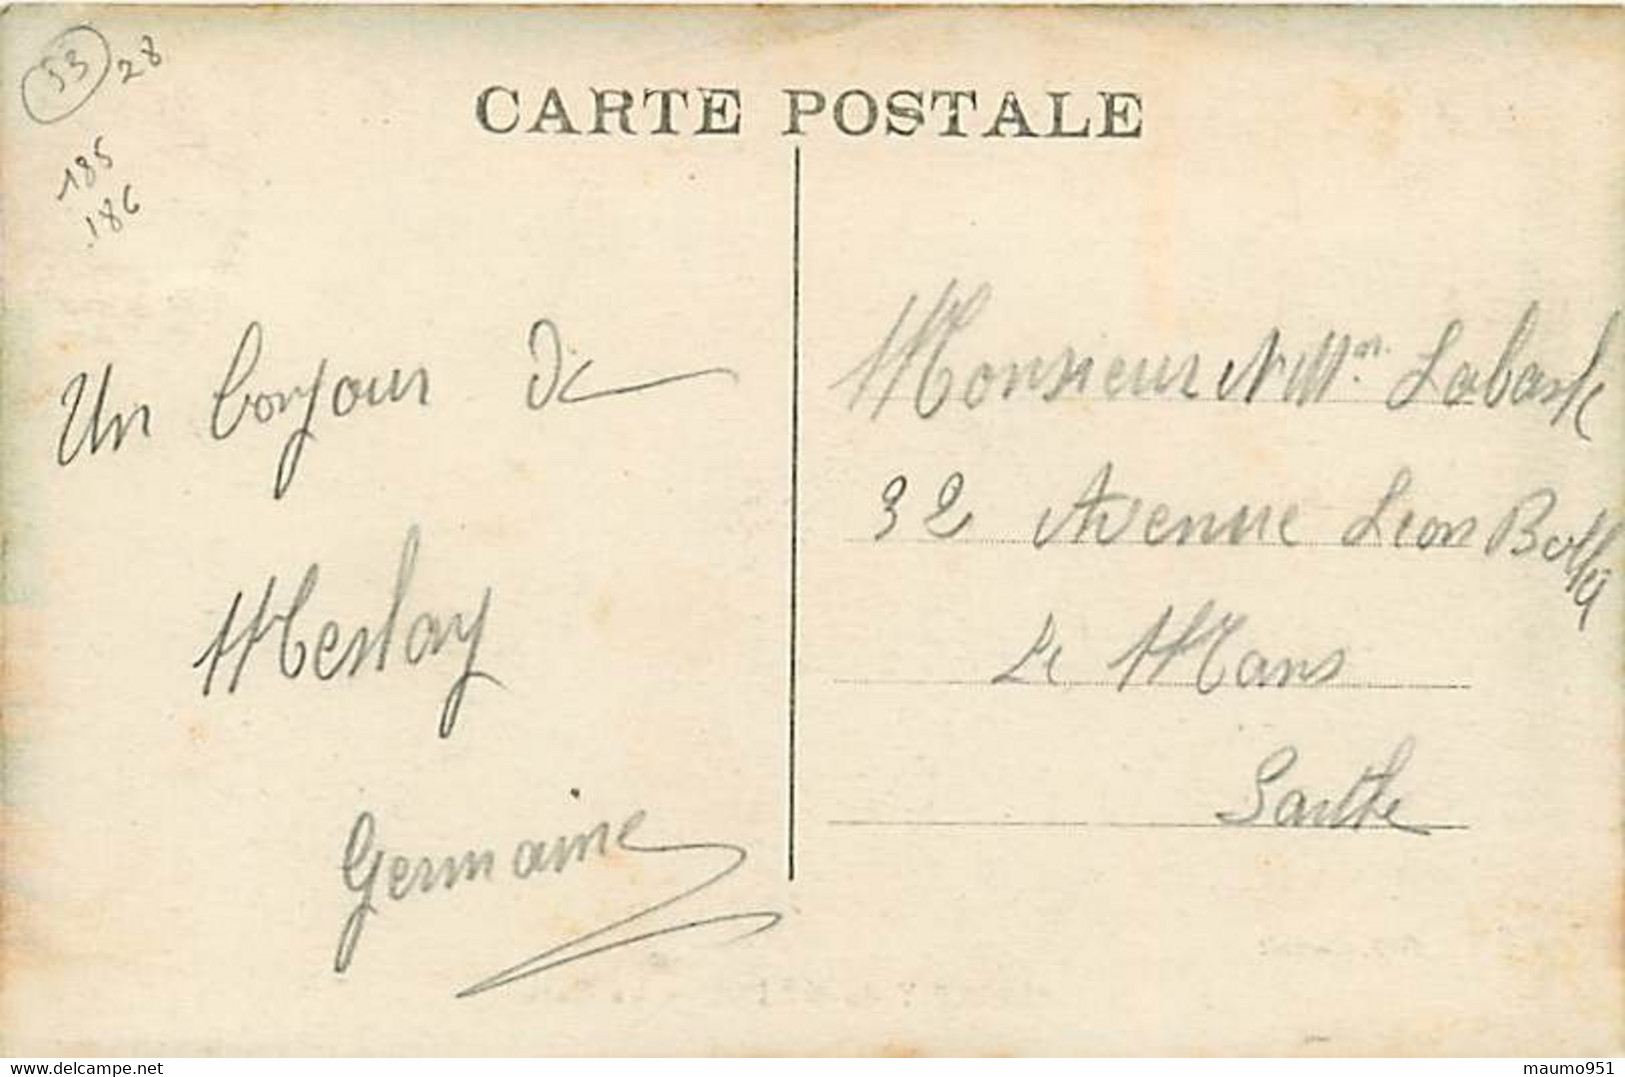 53 28
185
186
CARTE POSTALE
Un bonjour de
Meslay
Germaine
Monsieur Labask
32 Avenue Leon Bollé
Le Mans
Sarthe
delcampe.net
maumo951